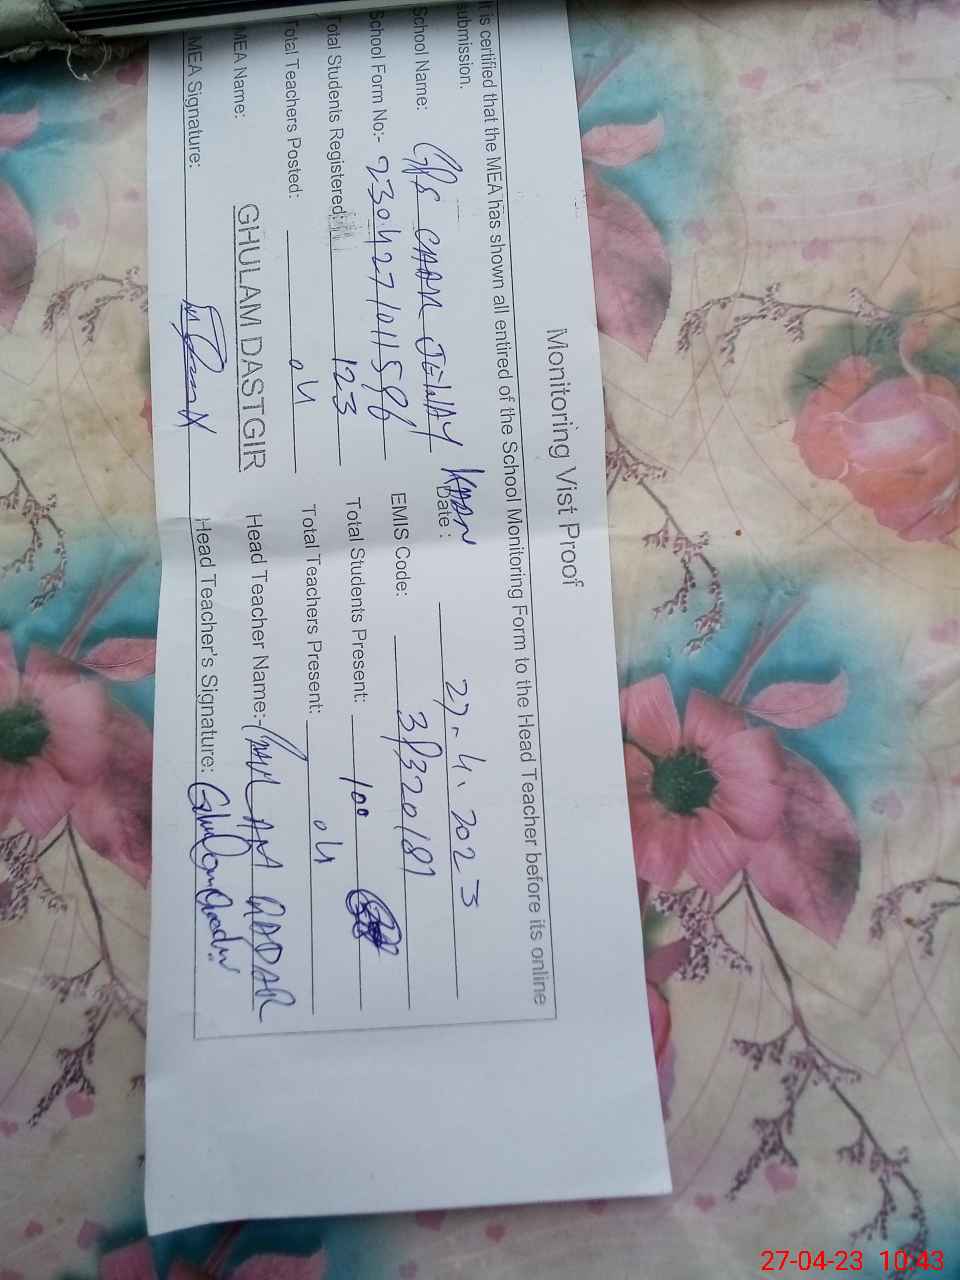 Monitoring Vist Proof
It is certified that the MEA has shown all entired of the School Monitoring Form to the Head Teacher before its online
submission.
School Name: GPS CHAH JEWAY KHAN Date: 27-4-2023
School Form No:- 230427101586 EMIS Code: 31320181
Total Students Registered: 123 Total Students Present: 100
Total Teachers Posted: 04 Total Teachers Present: 04
MEA Name: GHULAM DASTGIR Head Teacher Name:- QADAR
MEA Signature: Head Teacher's Signature:
27-04-23 10:43